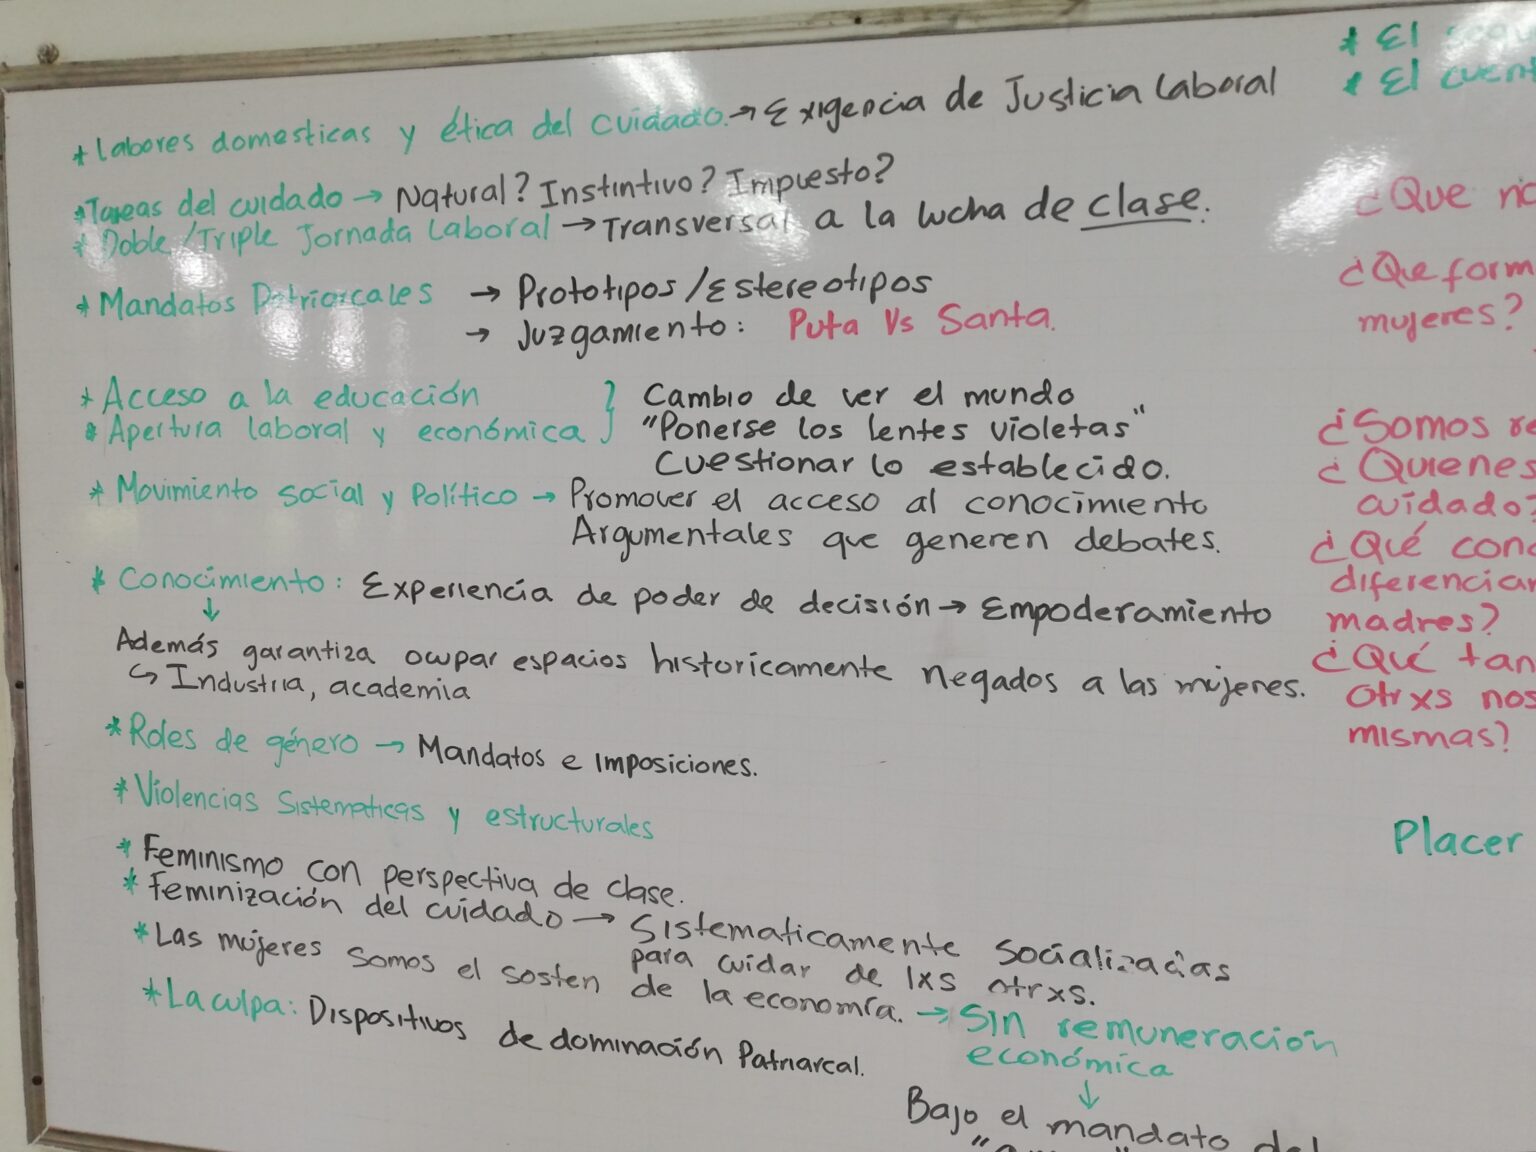 * Labores domesticas y ética del cuidado. → Exigencia de Justicia Laboral
* Tareas del cuidado → Natural? Instintivo? Impuesto?
* Doble/Triple Jornada Laboral → Transversal a la lucha de clase.
* Mandatos Patriarcales → Prototipos/Estereotipos
→ Juzgamiento: Puta Vs Santa.
* Acceso a la educación } Cambio de ver el mundo
* Apertura laboral y económica "Ponerse los lentes violetas"
Cuestionar lo establecido.
* Movimiento social y Político → Promover el acceso al conocimiento
Argumentales que generen debates.
* Conocimiento: Experiencia de poder de decisión → Empoderamiento
↓
Además garantiza ocupar espacios historicamente negados a las mujeres.
↪ Industria, academia
* Roles de género → Mandatos e imposiciones.
* Violencias Sistematicas y estructurales
* Feminismo con perspectiva de clase.
* Feminización del cuidado → Sistematicamente socializadas
para cuidar de lxs otrxs.
* Las mujeres somos el sosten de la economía. → Sin remuneración
económica
↓
* La culpa: Dispositivos de dominación Patriarcal.
Bajo el mandato del
* El
* El
¿Que
¿Que
mujeres?
¿Somos
¿Quienes
cuidado?
¿Qué
madres?
¿Qué
otrxs
mismas?
Placer